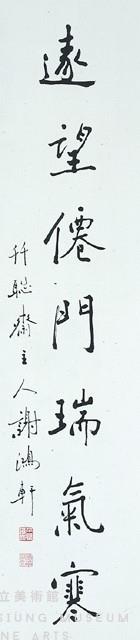 遠望僊門瑞氣寒
仟聯齋主人謝鴻軒
立美術館
SIUNG MUSEUM
NE ARTS